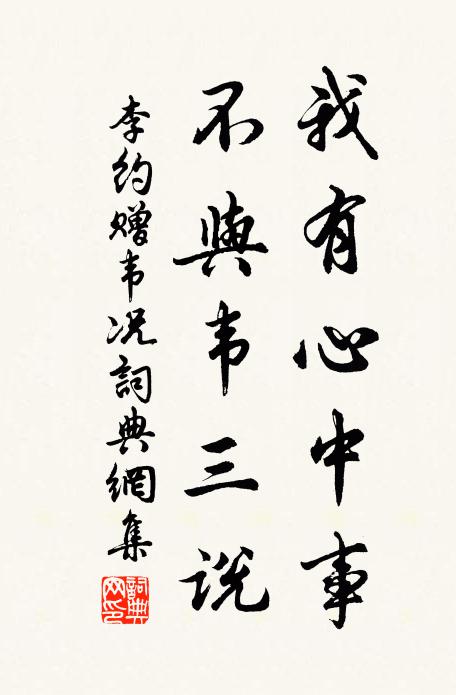 我有心中事
不與韦三说
李约赠韦况詞典網集
詞典网印